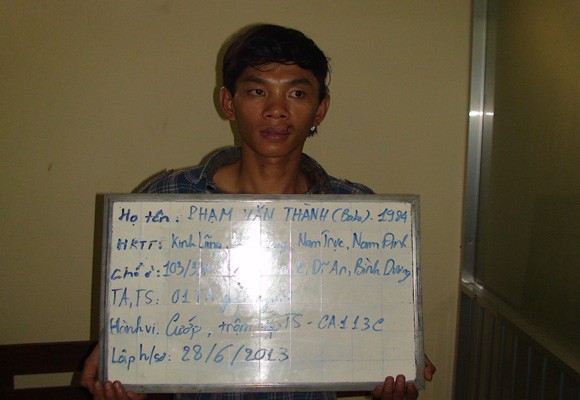 Họ tên: PHẠM VĂN THÀNH (Bato) - 1984
HKTT: Kinh Lũng, Nam Trực, Nam Định
Chỗ ở: 103/3 Dĩ An, Bình Dương
TA, TS: 01
Hành vi: Cướp, trộm TS - CA113C
Lập h/sơ: 28/6/2013